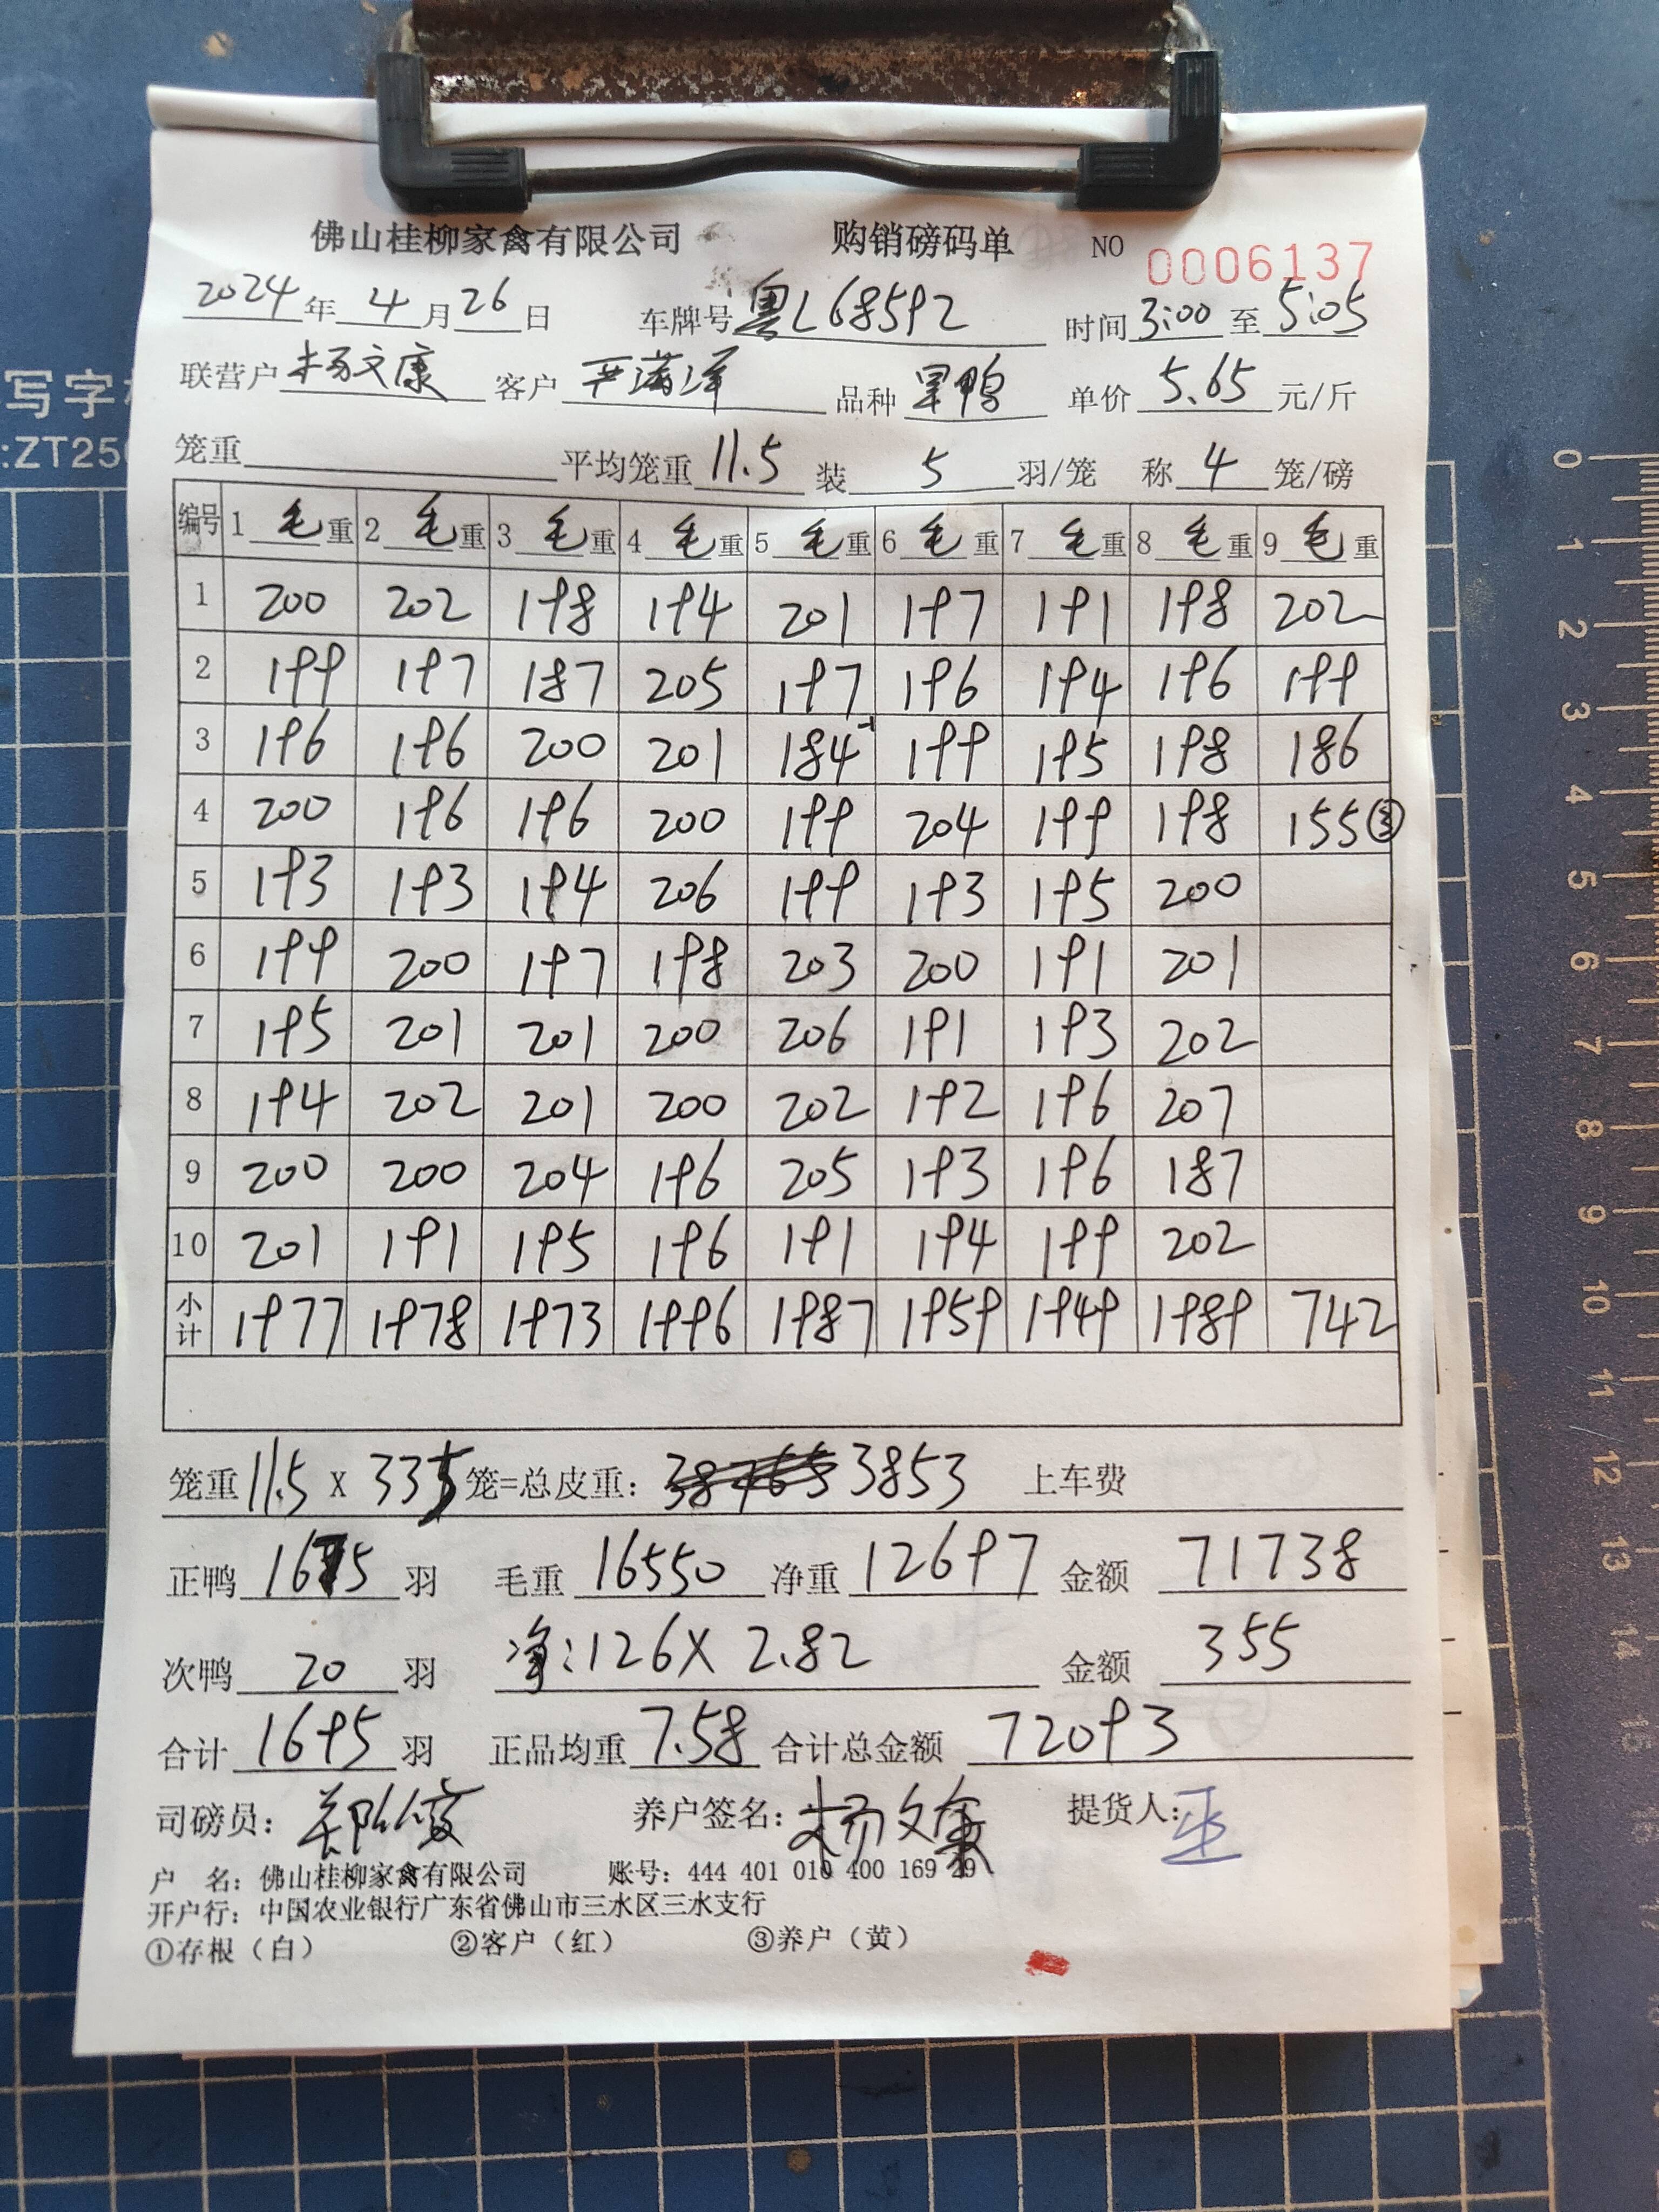 佛山桂柳家禽有限公司 购销磅码单 NO 0006137
2024年4月26日 车牌号 粤L68592 时间 3:00 至 5:05
写字
联营户 杨文康 客户 严满洋 品种 旱鸭 单价 5.65 元/斤
:ZT25
笼重 平均笼重 11.5 装 5 羽/笼 称 4 笼/磅
编号 1 毛重 2 毛重 3 毛重 4 毛重 5 毛重 6 毛重 7 毛重 8 毛重 9 毛重
1 200 202 198 194 201 197 191 198 202
2 199 197 187 205 197 196 194 196 199
3 196 196 200 201 184 199 195 198 186
4 200 196 196 200 199 204 199 198 155③
5 193 193 194 206 199 193 195 200
6 199 200 197 198 203 200 191 201
7 195 201 201 200 206 191 193 202
8 194 202 201 200 202 192 196 207
9 200 200 204 196 205 193 196 187
10 201 191 195 196 191 194 199 202
小计 1977 1978 1973 1996 1987 1959 1949 1989 742
笼重 11.5 x 335 笼=总皮重: 3853 上车费
正鸭 1675 羽 毛重 16550 净重 12697 金额 71738
次鸭 20 羽 净:126X 2.82 金额 355
合计 1695 羽 正品均重 7.58 合计总金额 72093
司磅员: 养户签名: 杨文康 提货人:
户 名: 佛山桂柳家禽有限公司 账号: 444 401 010 400 169 29
开户行: 中国农业银行广东省佛山市三水区三水支行
①存根（白） ②客户（红） ③养户（黄）
0
1
2
3
4
5
6
7
8
9
10
11
12
13
14
15
16